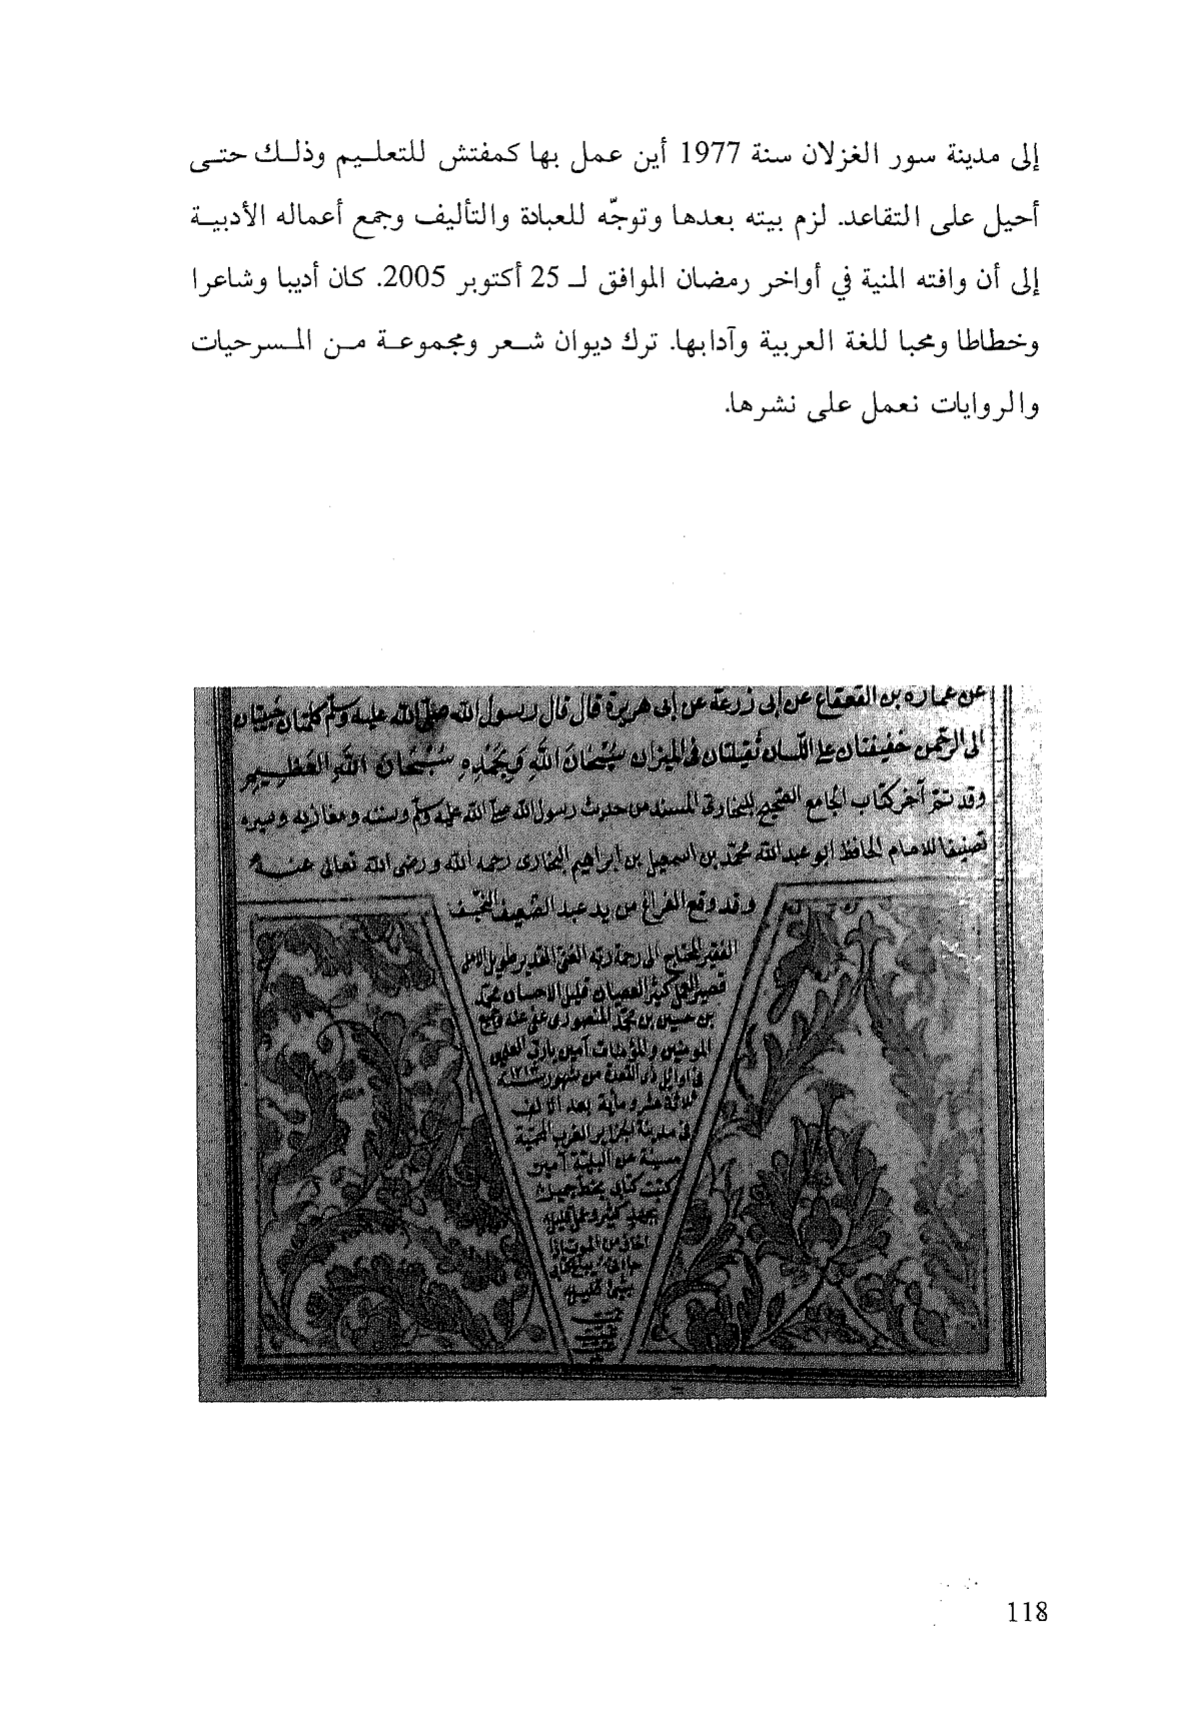 إلى مدينة سور الغزلان سنة 1977 أين عمل بها كمفتش للتعليم وذلك حتى
أحيل على التقاعد. لزم بيته بعدها وتوجّه للعبادة والتأليف وجمع أعماله الأدبية
إلى أن وافته المنية في أواخر رمضان الموافق لـ 25 أكتوبر 2005. كان أديبا وشاعرا
وخطاطا ومحبا للغة العربية وآدابها. ترك ديوان شعر ومجموعة من المسرحيات
والروايات نعمل على نشرها.
عن عمارة بن القعقاع عن ابى زرعة عن ابى هريرة قال قال رسول الله صلى الله عليه وسلم كلمتان حبيبتان
الى الرحمن خفيفتان على اللسان ثقيلتان فى الميزان سُبْحَانَ اللهِ وَبِحَمْدِهِ سُبْحَانَ اللهِ العَظِيمِ
وقد تم آخر كتاب الجامع الصحيح للبخارى المسند من حديث رسول الله صلى الله عليه وسلم وسننه ومغازيه وسيره
تصنيف الامام الحافظ ابو عبد الله محمد بن اسمعيل بن ابراهيم البخارى رحمه الله ورضى الله تعالى عنه
وقد وقع الفراغ من يد عبد الضعيف النحيف
الفقير المحتاج الى رحمة ربه الغنى القدير طويل الامل
قصير العمل كثير العصيان قليل الاحسان محمد
بن حسين بن محمد المنصورى عفى عنه وجميع
المومنين والمؤمنات آمين يارب العلمين
فى اوائل ذى القعدة من شهور سنة ١٢١٣
ثلاثة عشر وماية بعد الالف
فى مدينة الجزاير الغرب المحمية
من البلية آمين
كتبت كتابى بخط جميل
بجهد كثير وعمل قليل
اخاف من الموت اذا
جا يباع كتابى
بشئ قليل
118